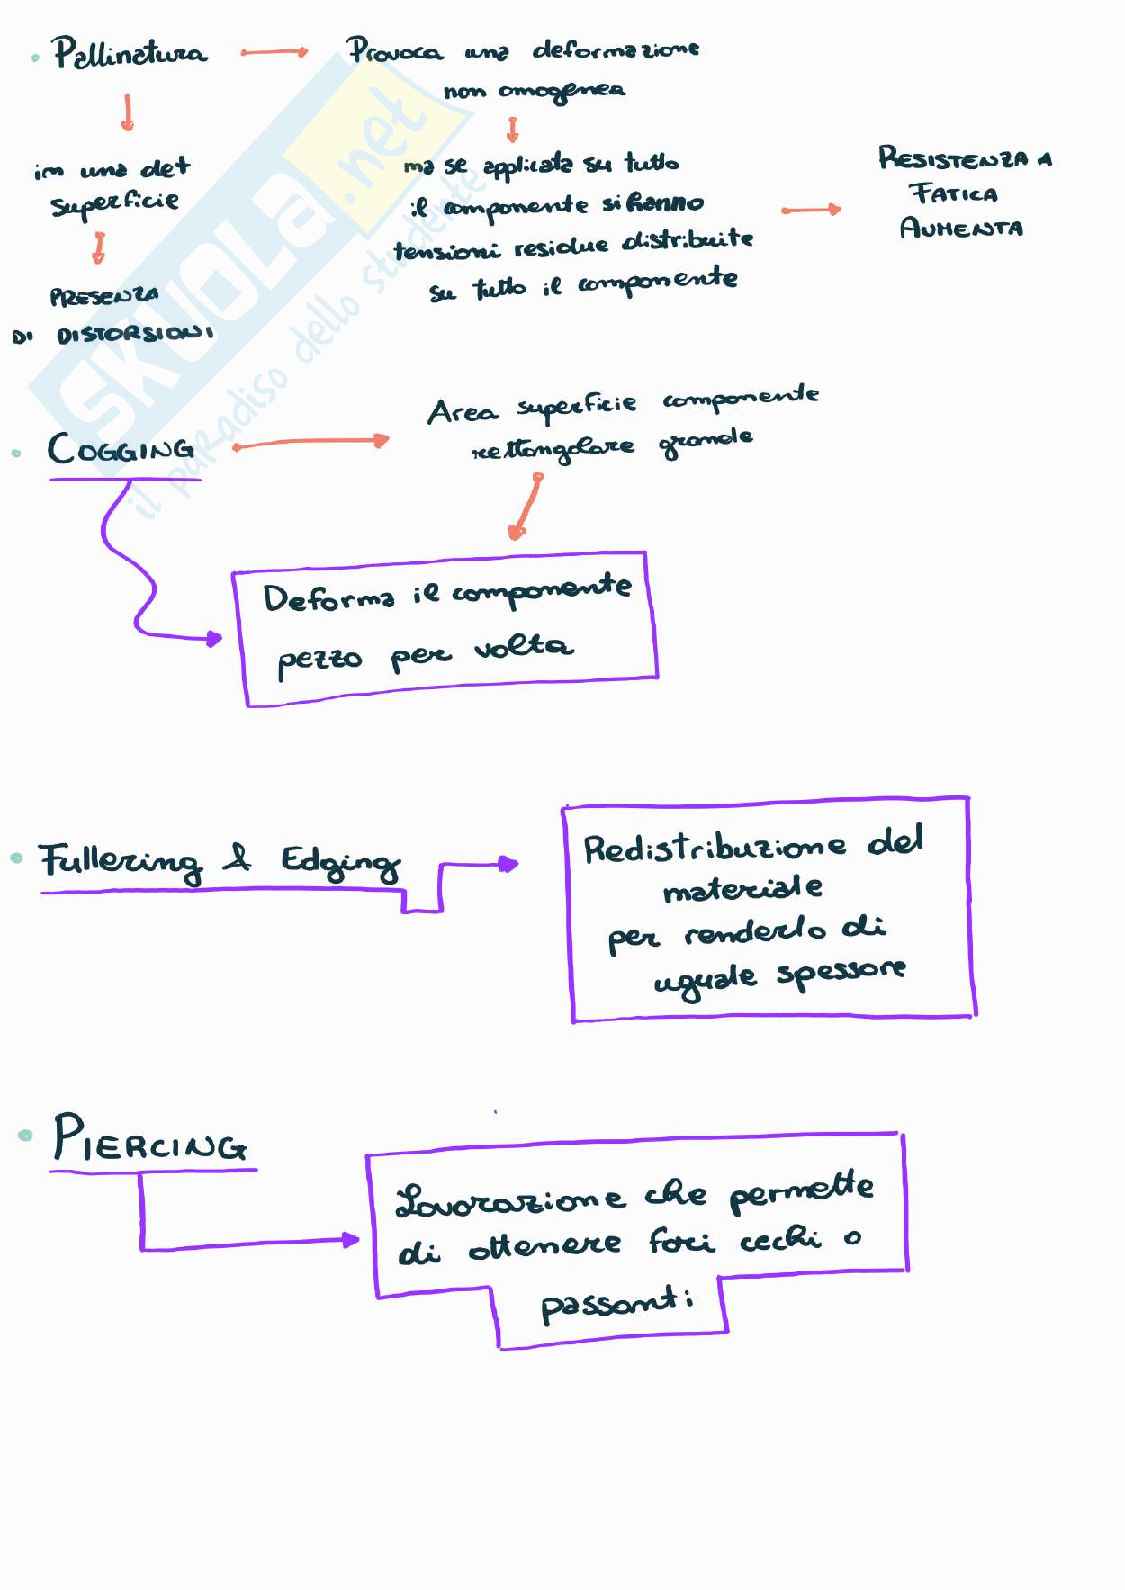 Pallinatura
Provoca una deformazione
non omogenea
in una det
superficie
PRESENZA
DI DISTORSIONI
ma se applicata su tutto
il componente si hanno
tensioni residue distribuite
su tutto il componente
RESISTENZA A
FATICA
AUMENTA
COGGING
Area superficie componente
rettangolare grande
Deforma il componente
pezzo per volta
Fullering & Edging
Redistribuzione del
materiale
per renderlo di
uguale spessore
PIERCING
Lavorazione che permette
di ottenere fori cechi o
passanti
SKUOLA.net
il paradiso dello studente